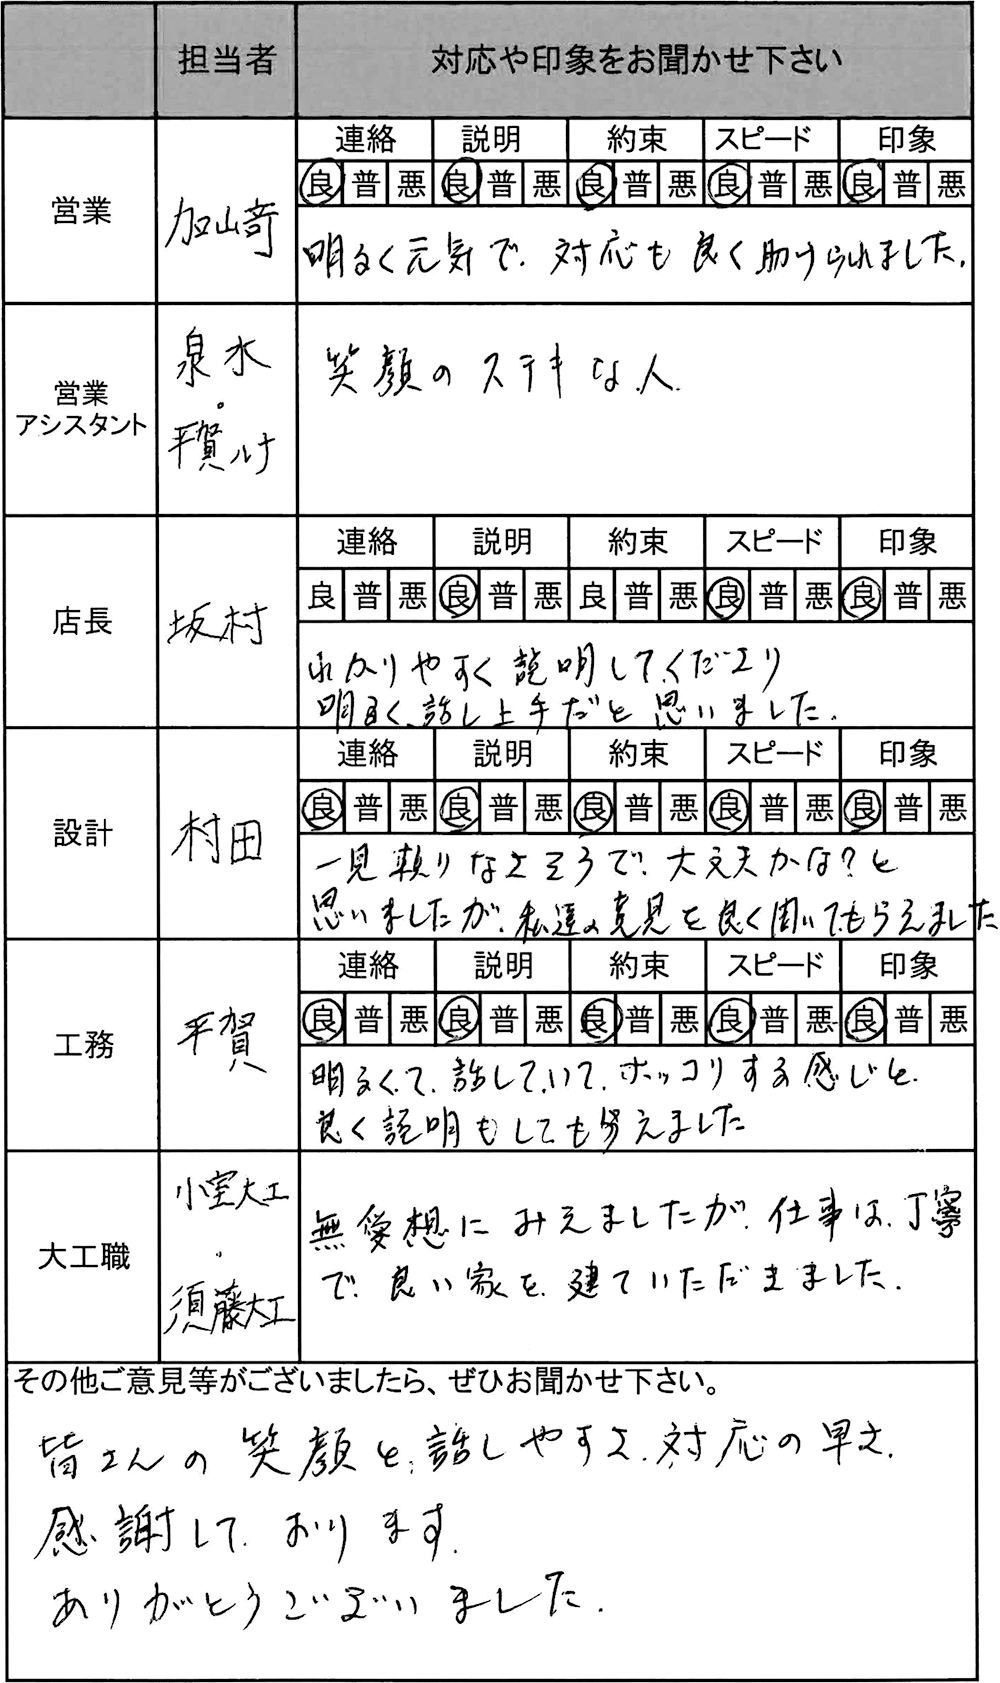 担当者 対応や印象をお聞かせ下さい
連絡 説明 約束 スピード 印象
良 普 悪 良 普 悪 良 普 悪 良 普 悪 良 普 悪
営業 加山嵜
明るく元気で、対応も良く助けられました。
営業
アシスタント
泉水
・
平賀ルナ
笑顔のステキな人。
連絡 説明 約束 スピード 印象
良 普 悪 良 普 悪 良 普 悪 良 普 悪 良 普 悪
店長 坂村
わかりやすく説明してくださり
明るく、話し上手だと思いました。
連絡 説明 約束 スピード 印象
良 普 悪 良 普 悪 良 普 悪 良 普 悪 良 普 悪
設計 村田
一見頼りなさそうで、大丈夫かな?と
思いましたが、私達の意見を良く聞いてもらえました
連絡 説明 約束 スピード 印象
良 普 悪 良 普 悪 良 普 悪 良 普 悪 良 普 悪
工務 平賀
明るくて、話していて、ホッコリする感じと、
良く説明もしても らえました
大工職
小室大工
・
須藤大工
無愛想にみえましたが、仕事は、丁寧
で、良い家を、建ていただきました。
その他ご意見等がございましたら、ぜひお聞かせ下さい。
皆さんの笑顔と、話しやすさ、対応の早さ、
感謝して、おります。
ありがとうございました。